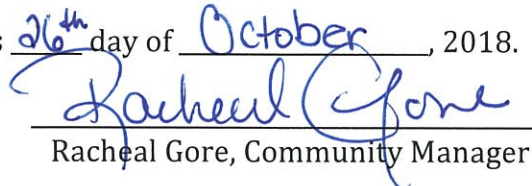 s 26th day of October, 2018.
Racheal Gore
Racheal Gore, Community Manager